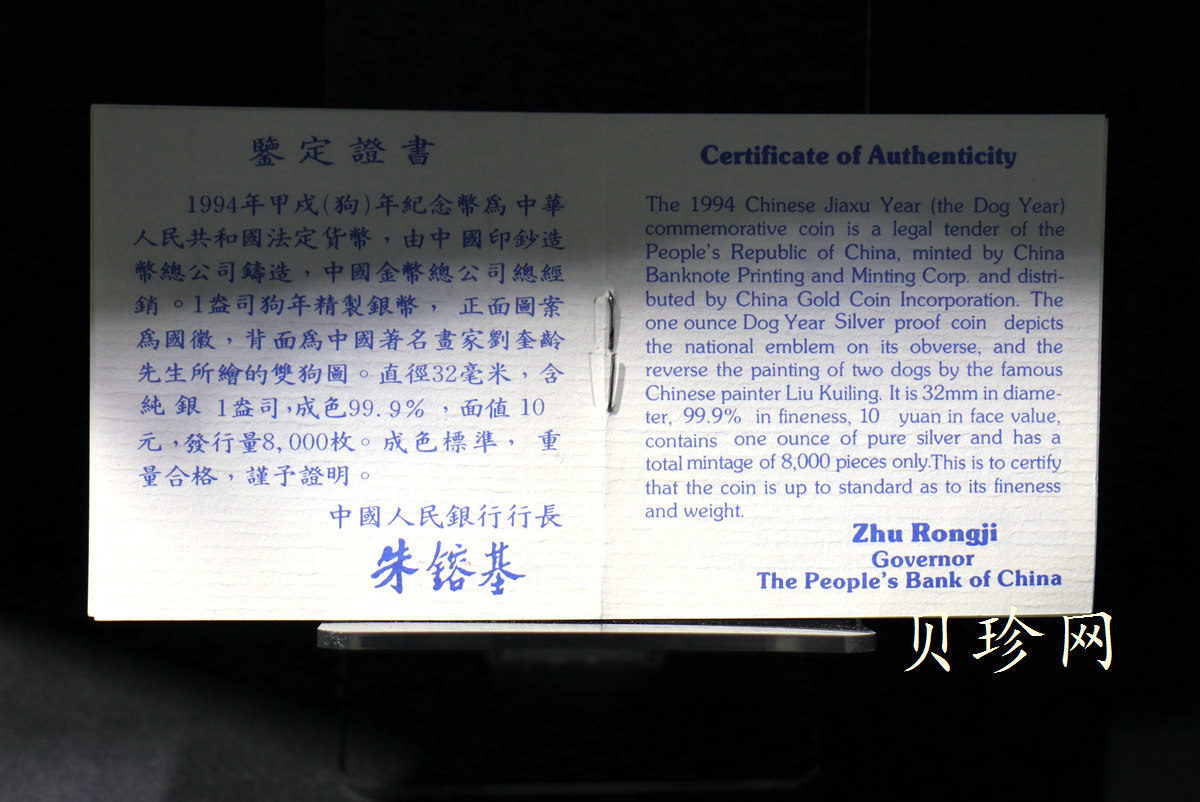 鑒定證書
1994年甲戌(狗)年紀念幣爲中華
人民共和國法定貨幣，由中國印鈔造
幣總公司鑄造，中國金幣總公司總經
銷。1盎司狗年精製銀幣， 正面圖案
爲國徽，背面爲中國著名畫家劉奎齡
先生所繪的雙狗圖。直徑32毫米，含
純銀 1盎司，成色99.9%，面值10
元，發行量8,000枚。成色標準， 重
量合格，謹予證明。
中國人民銀行行長
朱鎔基
Certificate of Authenticity
The 1994 Chinese Jiaxu Year (the Dog Year)
commemorative coin is a legal tender of the
People's Republic of China, minted by China
Banknote Printing and Minting Corp. and distri-
buted by China Gold Coin Incorporation. The
one ounce Dog Year Silver proof coin depicts
the national emblem on its obverse, and the
reverse the painting of two dogs by the famous
Chinese painter Liu Kuiling. It is 32mm in diame-
ter, 99.9% in fineness, 10 yuan in face value,
contains one ounce of pure silver and has a
total mintage of 8,000 pieces only.This is to certify
that the coin is up to standard as to its fineness
and weight.
Zhu Rongji
Governor
The People's Bank of China
贝珍网